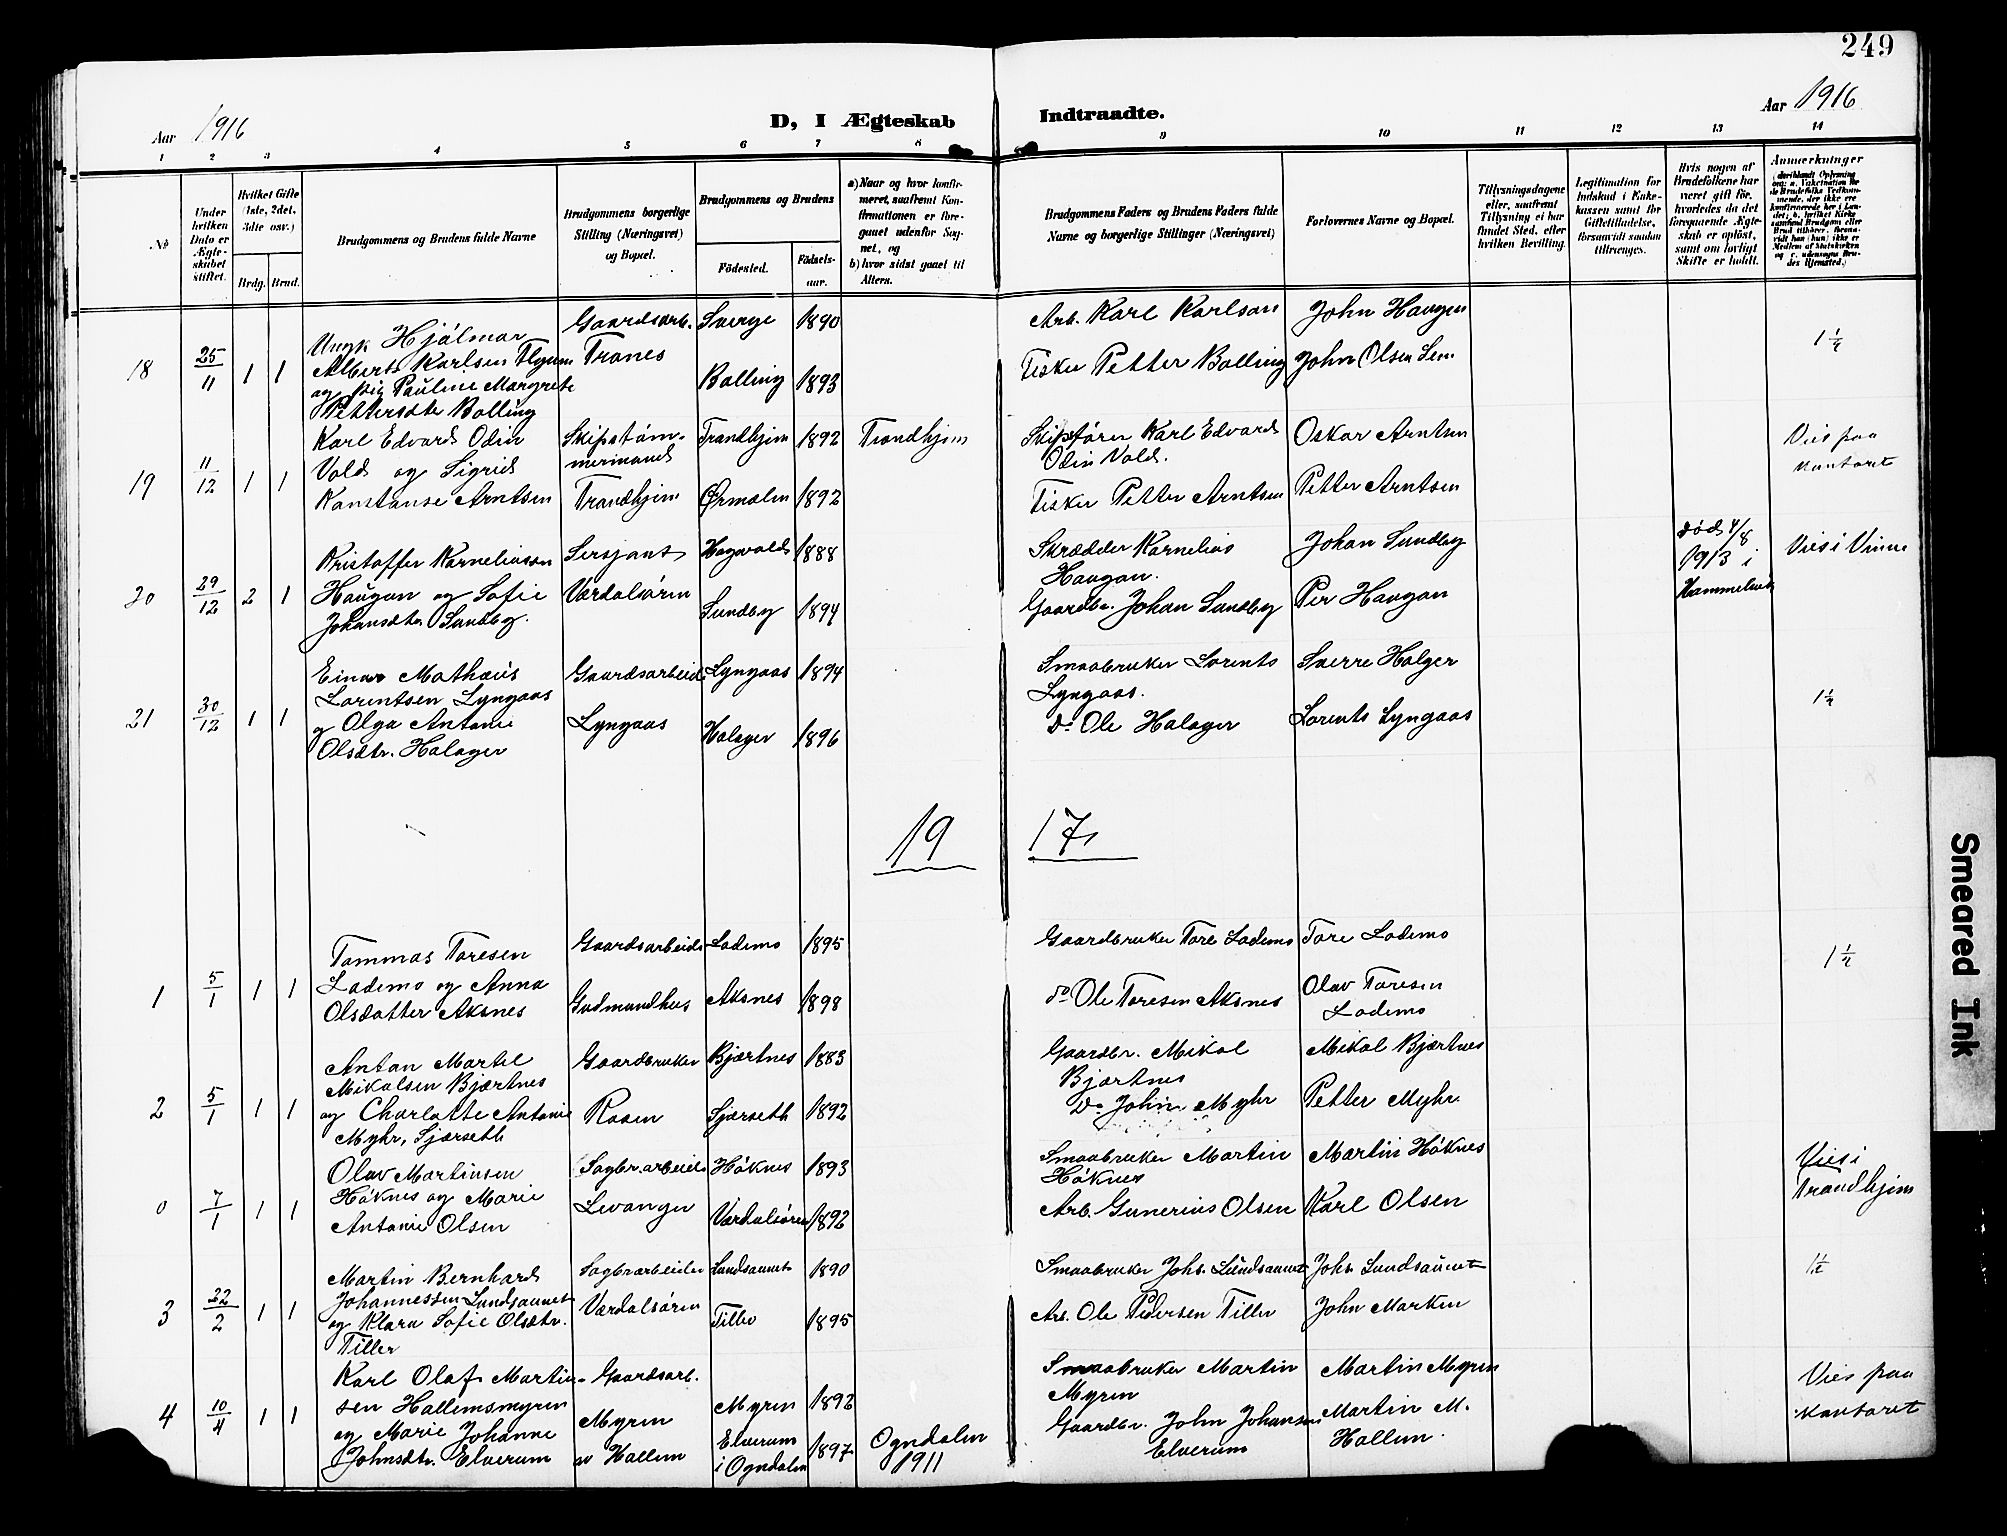 249
Aar 1916
D, I Ægteskab Indtraadte.
Aar 1916
1 2 3 4 5 6 7 8 9 10 11 12 13 14
No
Under hvilken Dato er Ægteskabet stiftet.
Hvilket Gifte (1ste, 2det, 3dte osv.)
Brdg. Brud.
Brudgommens og Brudens fulde Navne
Brudgommens borgerlige Stilling (Næringsvei) og Bopæl.
Brudgommens og Brudens
Födested. Födsels-aar.
a) Naar og hvor konfirmeret, saafremt Konfirmationen er foregaaet udenfor Sognet, og
b) hvor sidst gaaet til Alters.
Brudgommens Faders og Brudens Faders fulde Navne og borgerlige Stillinger (Næringsvei)
Forlovernes Navne og Bopæl.
Tillysningsdagene eller, saafremt Tillysning ei har fundet Sted, efter hvilken Bevilling.
Legitimation for Indskud i Enkekassen samt for Giftetilladelse, forsaavidt saadan tiltrænges.
Hvis nogen af Brudefolkene har været gift för, hvorledes da det foregaaende Ægteskab er oplöst, samt om lovligt Skifte er holdt.
Anmerkninger
18 25/11 1 1
Ungk Hjálmar
Albert Karlsen Flynum
og pig Pauline Margrete
Pettersdtr Balling
Gaardsarb.
Tranes
Sverge 1890
Balling 1893
Arb. Karl Karlson
Fisker Petter Balling
John Haugen
John Olsen Sem
1 1/2
19 11/12 1 1
Karl Edvard Odin
Vold og Sigrid
Konstanse Arntsen
Skipstöm-
mermand
Trondhjem
Trondhjem 1892
Ørmelen 1892
Trondhjem
Skipsfører Karl Edvard
Odin Vold.
Fisker Petter Arntsen
Oskar Arntsen
Petter Arntsen
Vies paa
kontoret
20 29/12 2 1
Kristoffer Korneliussen
Haugan og Sofie
Johansdtr Sundby.
Sersjant
Værdalsøren
1888
Sundby 1894
Skrædder Kornelius
Haugan.
Gaardbr. Johan Sundby
Johan Sundby
Per Haugan
død 4/8
1913 i
Vies i Vinne
21 30/12 1 1
Einar Mathæus
Lorentsen Lyngaas
og Olga Antonie
Olsdtr. Halager
Gaardsarbeid
Lyngaas
Lyngaas 1894
Halager 1896
Smaabruker Lorents
Lyngaas.
Do Ole Halager
Sverre Holger
Lorents Lyngaas
1 1/2
19 17
1 5/1 1 1
Tommas Toresen
Lademo og Anna
Olsdatter Aksnes
Gaardsarbeid
Gudmundhus
Lademo 1895
Aksnes 1898
Gaardbruker Tore Lademo
do Ole Toresen Aksnes
Tore Lademo
Olav Toresen
Lademo
1 1/2
2 5/1 1 1
Anton Martel
Mikalsen Bjærtnes
og Charlotte Antonie
Myhr, Sjærseth
Gaardbruker
Rosen
Bjærtnes 1883
Sjærseth 1892
Gaardbr. Mikal
Bjærtnes
Do John Myhr
Mikal Bjærtnes
Petter Myhr.
0 7/1 1 1
Olav Martinsen
Höknes og Marie
Antonie Olsen
Sagbr.arbeid
Levanger
Höknes 1893
Værdalsøren 1892
Smaabruker Martin
Höknes
Arb. Gunerius Olsen
Martin Höknes
Karl Olsen
Vies i
Trondhjem
3 22/2 1 1
Martin Bernhard
Johannessen Lundsaunet
og Klara Sofie Olsdtr.
Tiller
Sagbrarbeider
Værdalsøren
Lundsaunet 1890
1895
Smaabruker Johs. Lundsaunet
Arb. Ole Pedersen Tiller
Johs. Lundsaunet
John Marken
1 1/2
4 10/4 1 1
Karl Olaf Martin-
sen Hallemsmyren
og Marie Johanne
Johnsdtr. Elverum
Gaardsarb.
Myren
av Hallem
Myren 1892
Elverum
i Ogndalen 1897
Ogndalen
1911
Smaabruker Martin
Myren
Gaardbr. John Johansen
Elverum
Martin Myren
Martin M.
Hallem.
Vies paa
kontoret
Smeared Ink